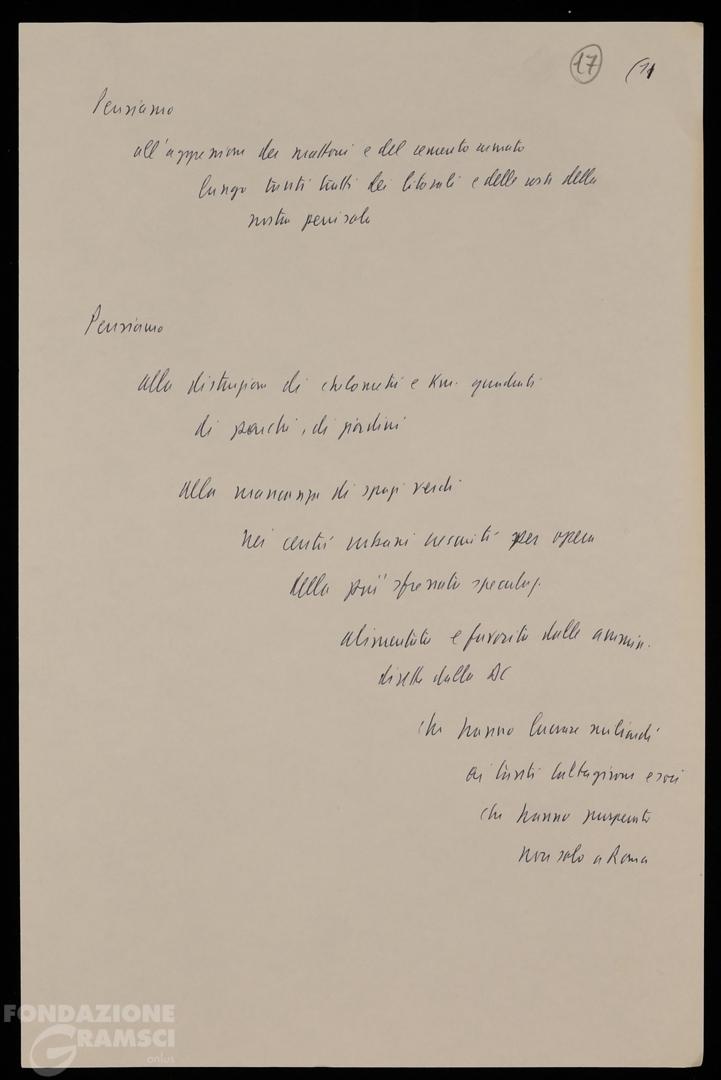 17 (11
Pensiamo
all'aggressione dei mattoni e del cemento armato
lungo tanti tratti dei litorali e delle coste della
nostra penisola
Pensiamo
alla distruzione di chilometri e Km. quadrati
di parchi, di giardini
alla mancanza di spazi verdi
nei centri urbani cresciuti per opera
della più sfrenata speculaz.
alimentata e favorita dalle ammin.
dirette dalla DC
che hanno lucrare miliardi
ai tanti Caltagirone e soci
che hanno prosperato
non solo a Roma
FONDAZIONE
GRAMSCI
onlus